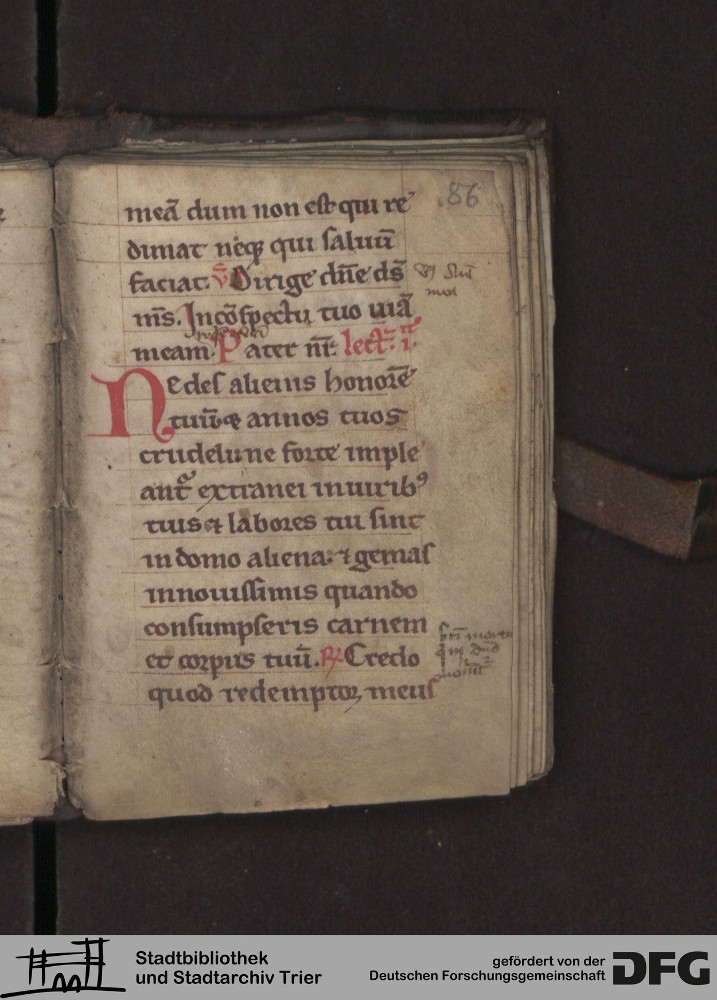 .86
meā dum non est qui re
dimat neq; qui saluū
faciat. V Dirige dn̄e ds̄
m̄s. In cōspectu tuo uiā
meam. Pater nr̄. lect. i.
Ne des alienis honorē
tuū & annos tuos
crudeli. ne forte imple
ant᷑ extranei in uirib⁹
tuis & labores tui sint
in domo aliena. ⁊ gemas
in nouissimis quando
consumpseris carnem
et corpus tuū. R̷ Credo
quod redemptor meus
Stadtbibliothek
und Stadtarchiv Trier
gefördert von der
Deutschen Forschungsgemeinschaft
DFG